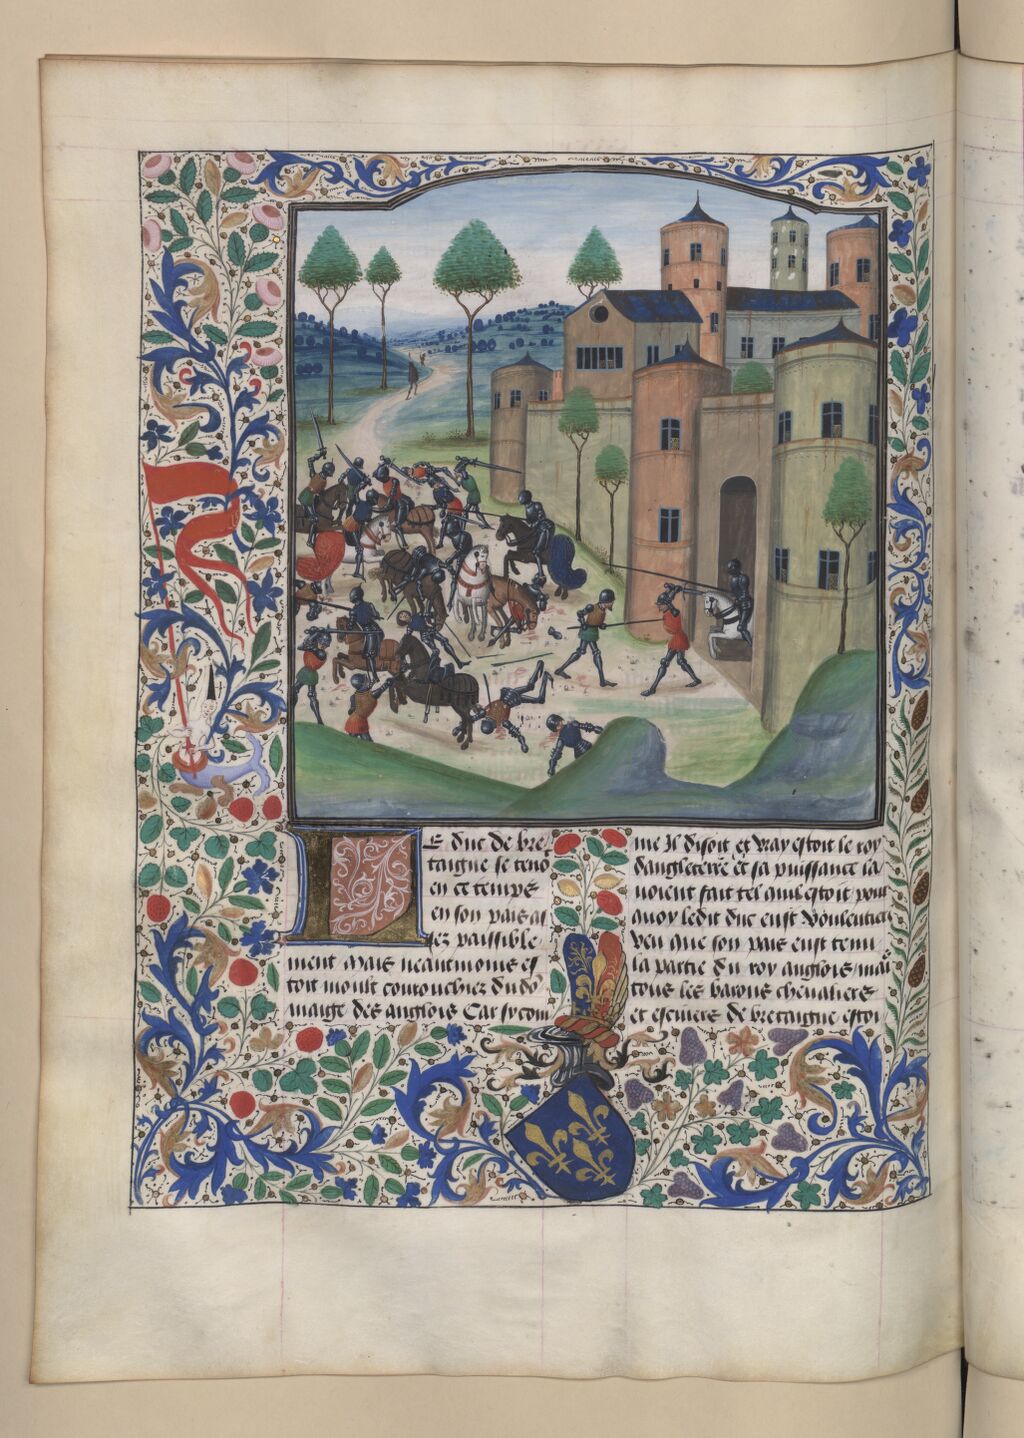 Le duc de bre
taigne se tenoit
en ce temps
en son pais as
sez paissible
ment Mais neantmoins es
toit moult courouchiez du do
maige des anglois Car sy com
me Il disoit et vray estoit le roy
dangleterre et sa puissance la
uoient fait tel quil estoit pour
quoy ledit duc eust voulentiers
veu que son pais eust tenu
la partie du roy anglois mais
tous les barons chevaliers
et escuiers de bretaigne estoi